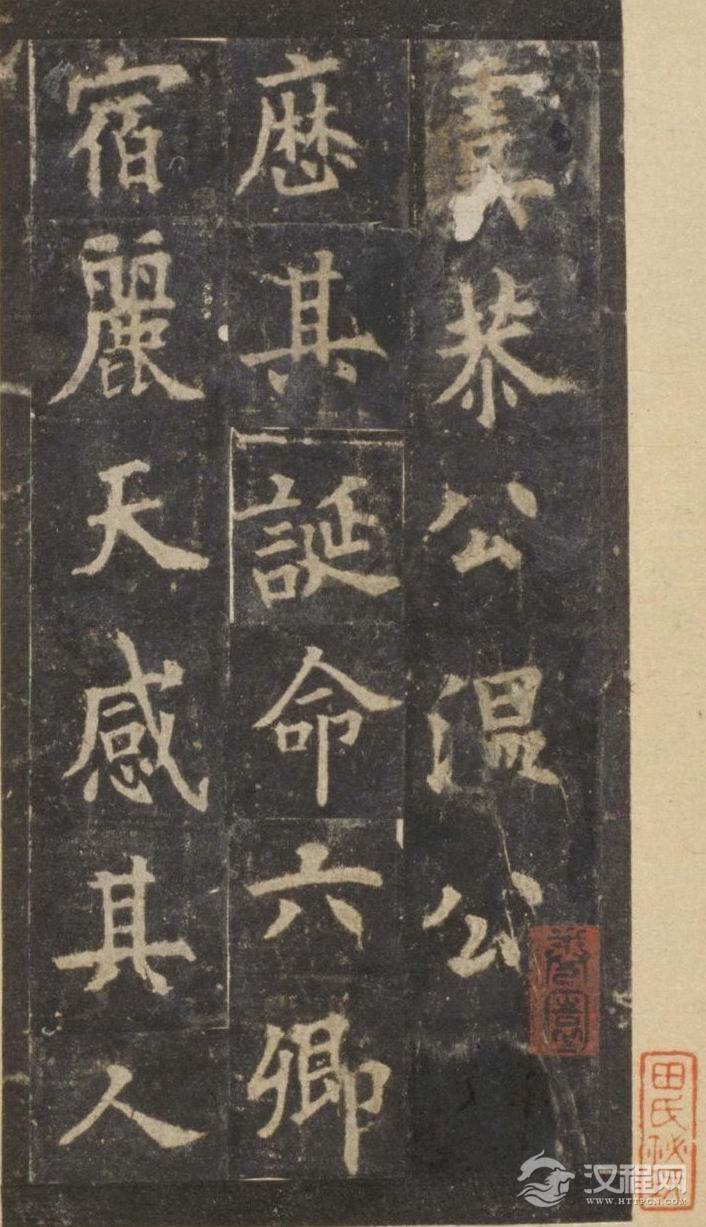 虞恭公温公
歴其誕命六卿
宿麗天感其人
田氏
汉程网
WWW.HTTPCN.COM